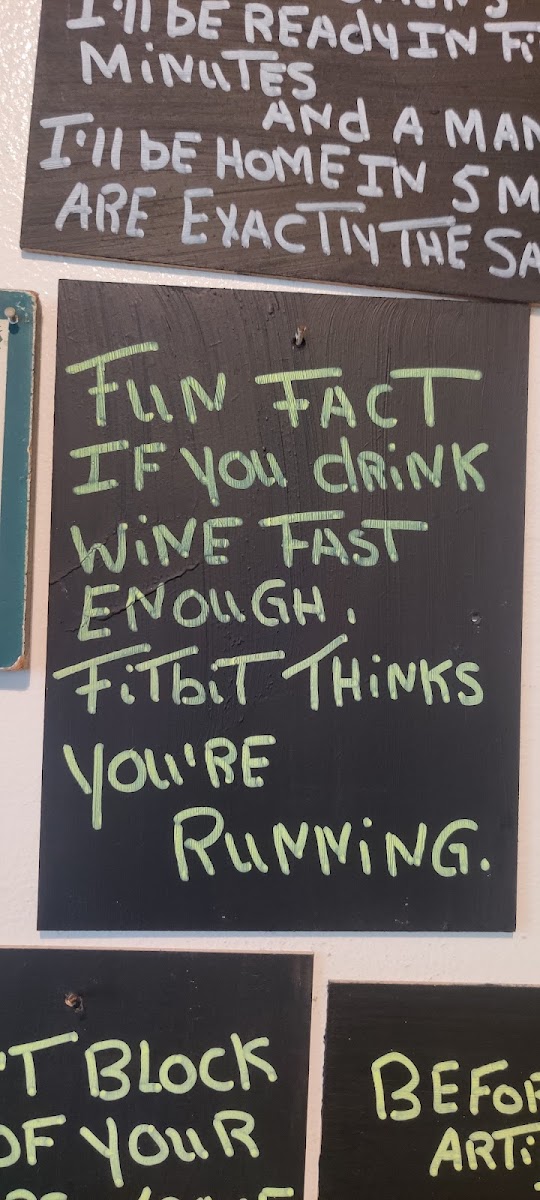 I'll BE READY IN
MINUTES
AND A MAN
I'll BE HOME IN 5
ARE EXACTLY THE
FUN FACT
IF YOU DRINK
WINE FAST
ENOUGH.
FITBIT THINKS
YOU'RE
RUNNING.
BLOCK
OF YOUR